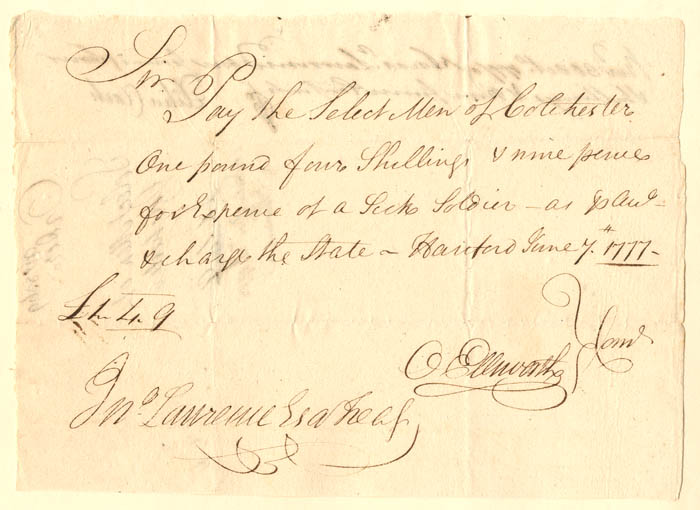 Sir
Pay the Select Men of Colchester
One pound four Shillings & nine pence
for Expense of a Sick Soldier – as p
& charge the State – Hartford June 7th 1777–
£1 " 4 " 9
O Ellsworth } Comte
Jno Lawrence Esqr Treasr